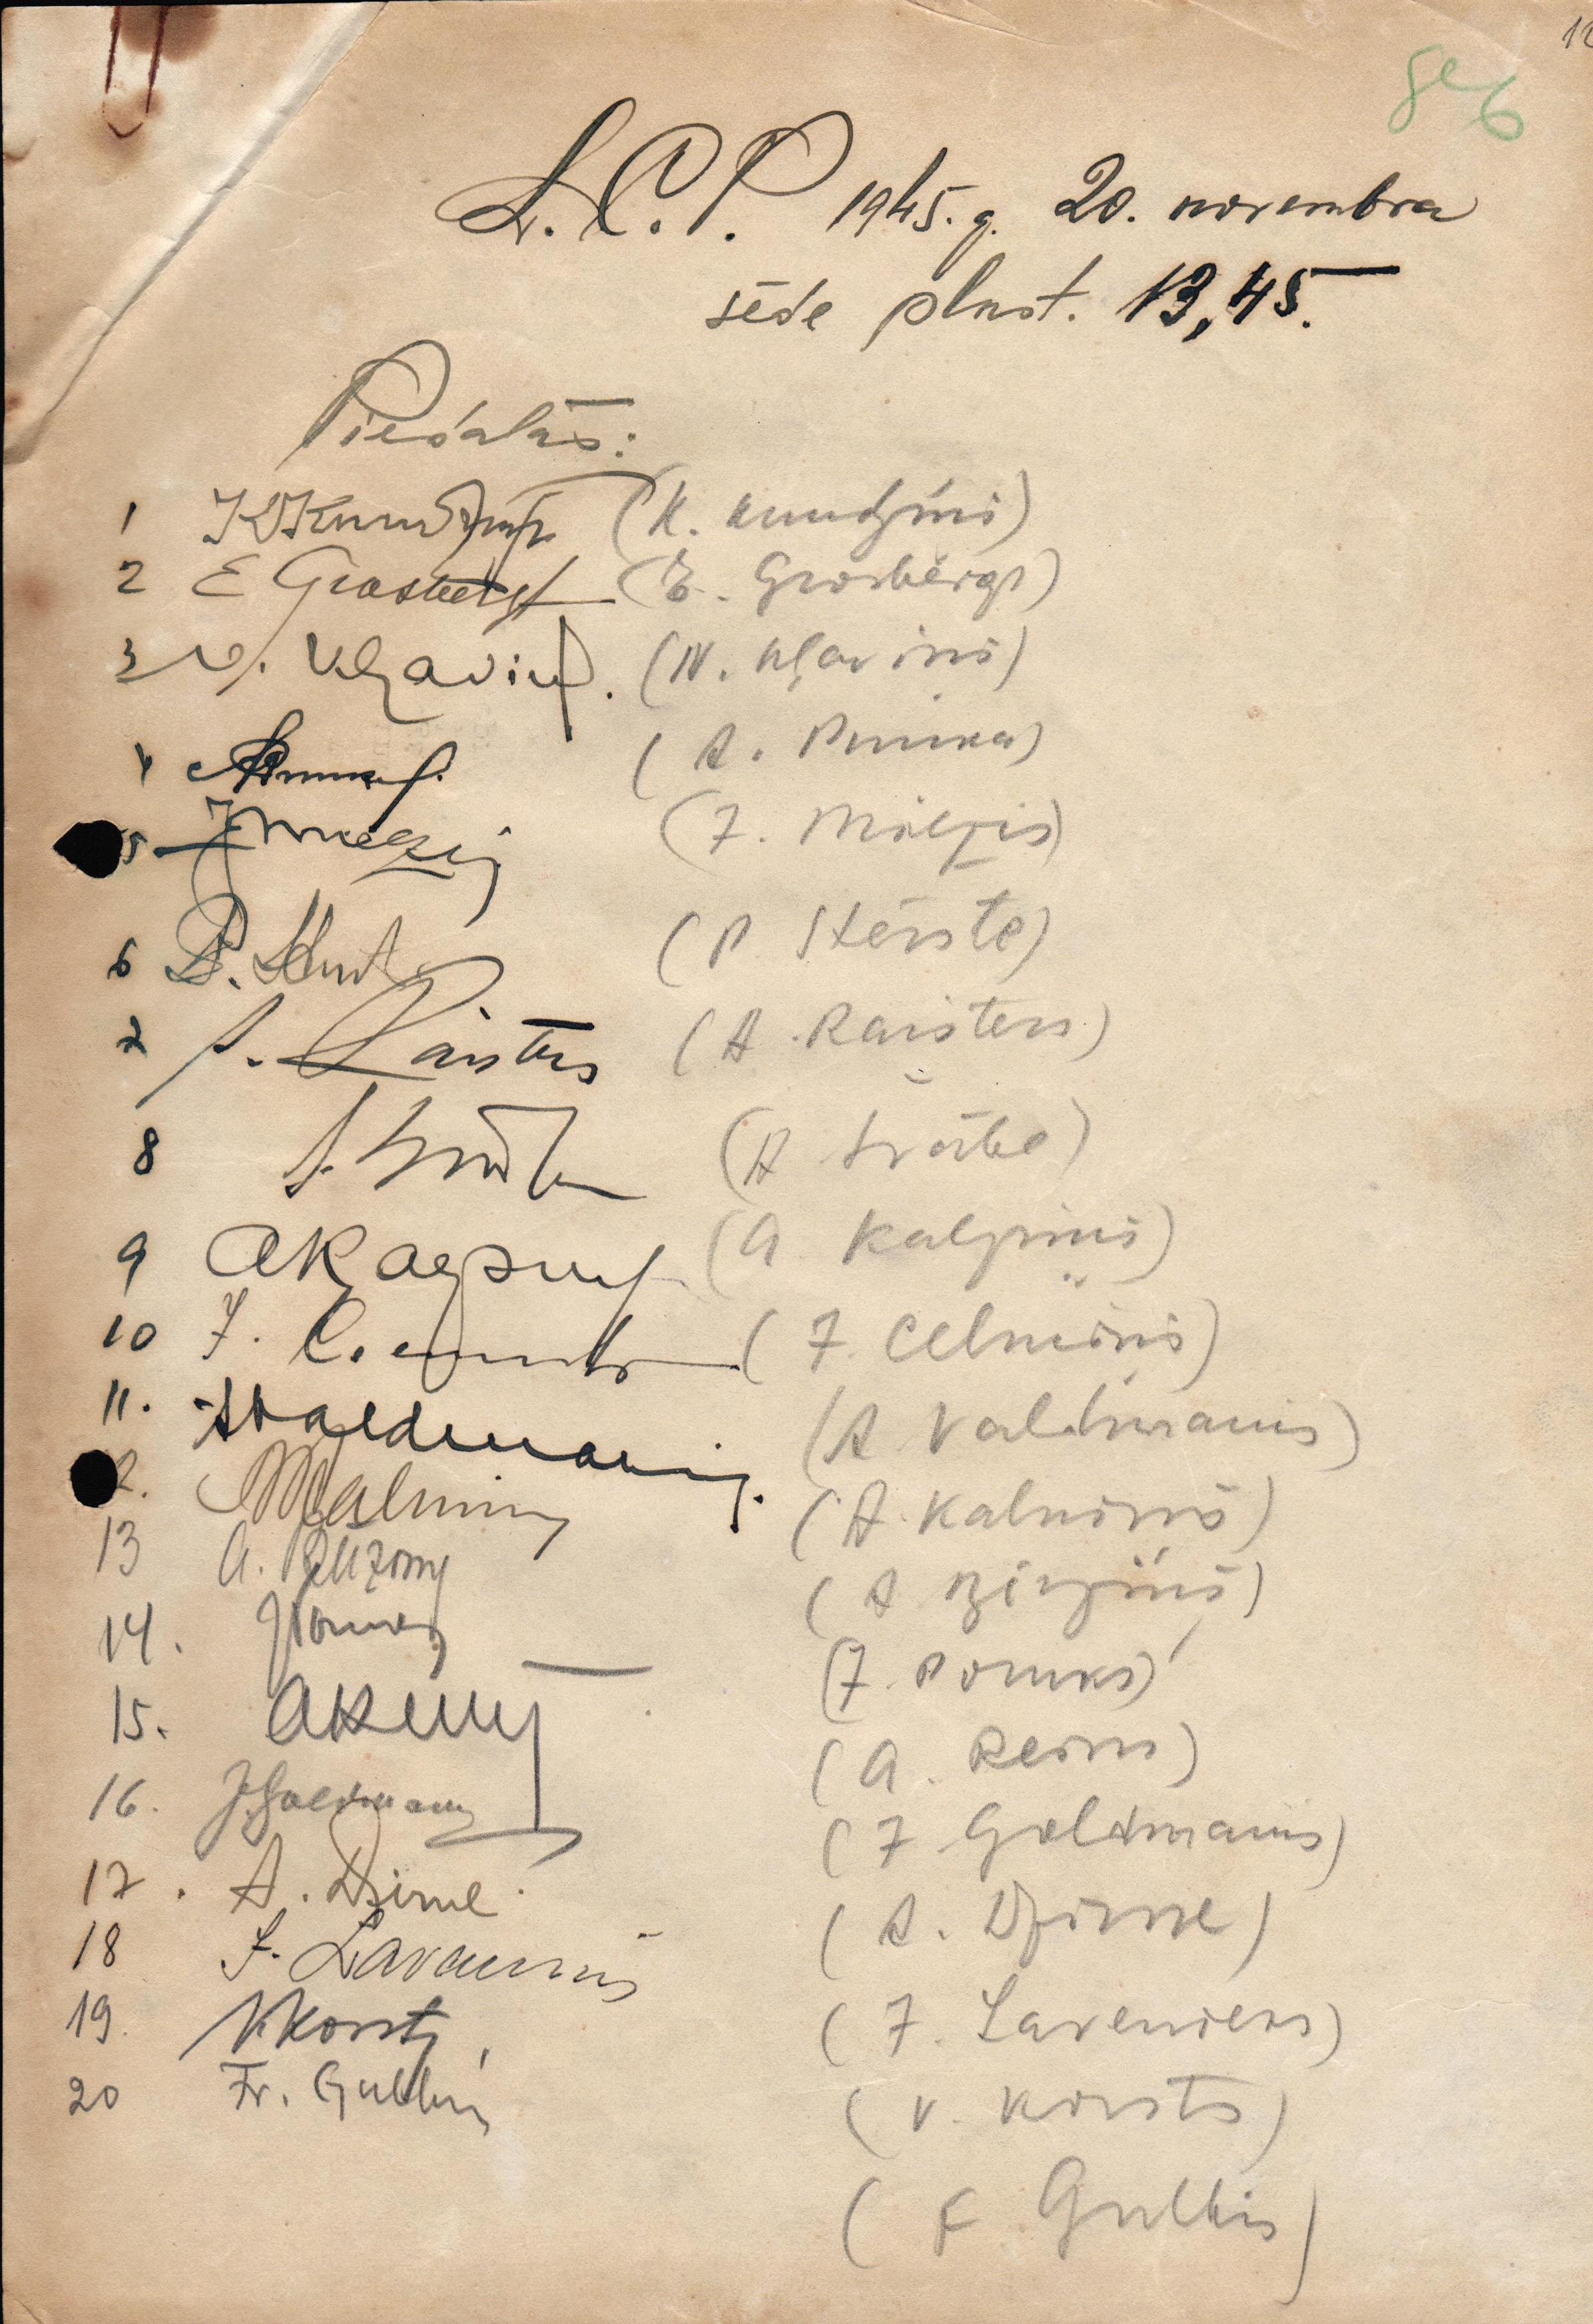 12
L. C. P. 1945. g. 20. novembra
sēde plkst. 13,45.
Piedalās:
1 (K. Kundziņš)
2 E Grosbergs (E. Grosbergs)
3 V. Kļaviņš. (V. Kļaviņš)
4 (A. Pumka)
5 J Mieizis (J. Mieizis)
6 P. (P Stērste)
7 A. Raisters (A. Raisters)
8 A. Švābe (A Švābe)
9 A Kalniņš (A Kalniņš)
10 J. Celmiņš (J. Celmiņš)
11. A Valdmanis. (A Valdmanis)
2. Kalniņš (A. Kalniņš)
13 A. (A Bērziņš)
14. (J. Pommers)
15. A Reiņš (A. Reins)
16. J. Goldmanis (J Goldmanis)
17. A. Dzirne (A. Dzirne)
18 J. Lavenieks (J. Lavenieks)
19. V. Korsts (V. Korsts)
20 Fr. Gulbis (F Gulbis)